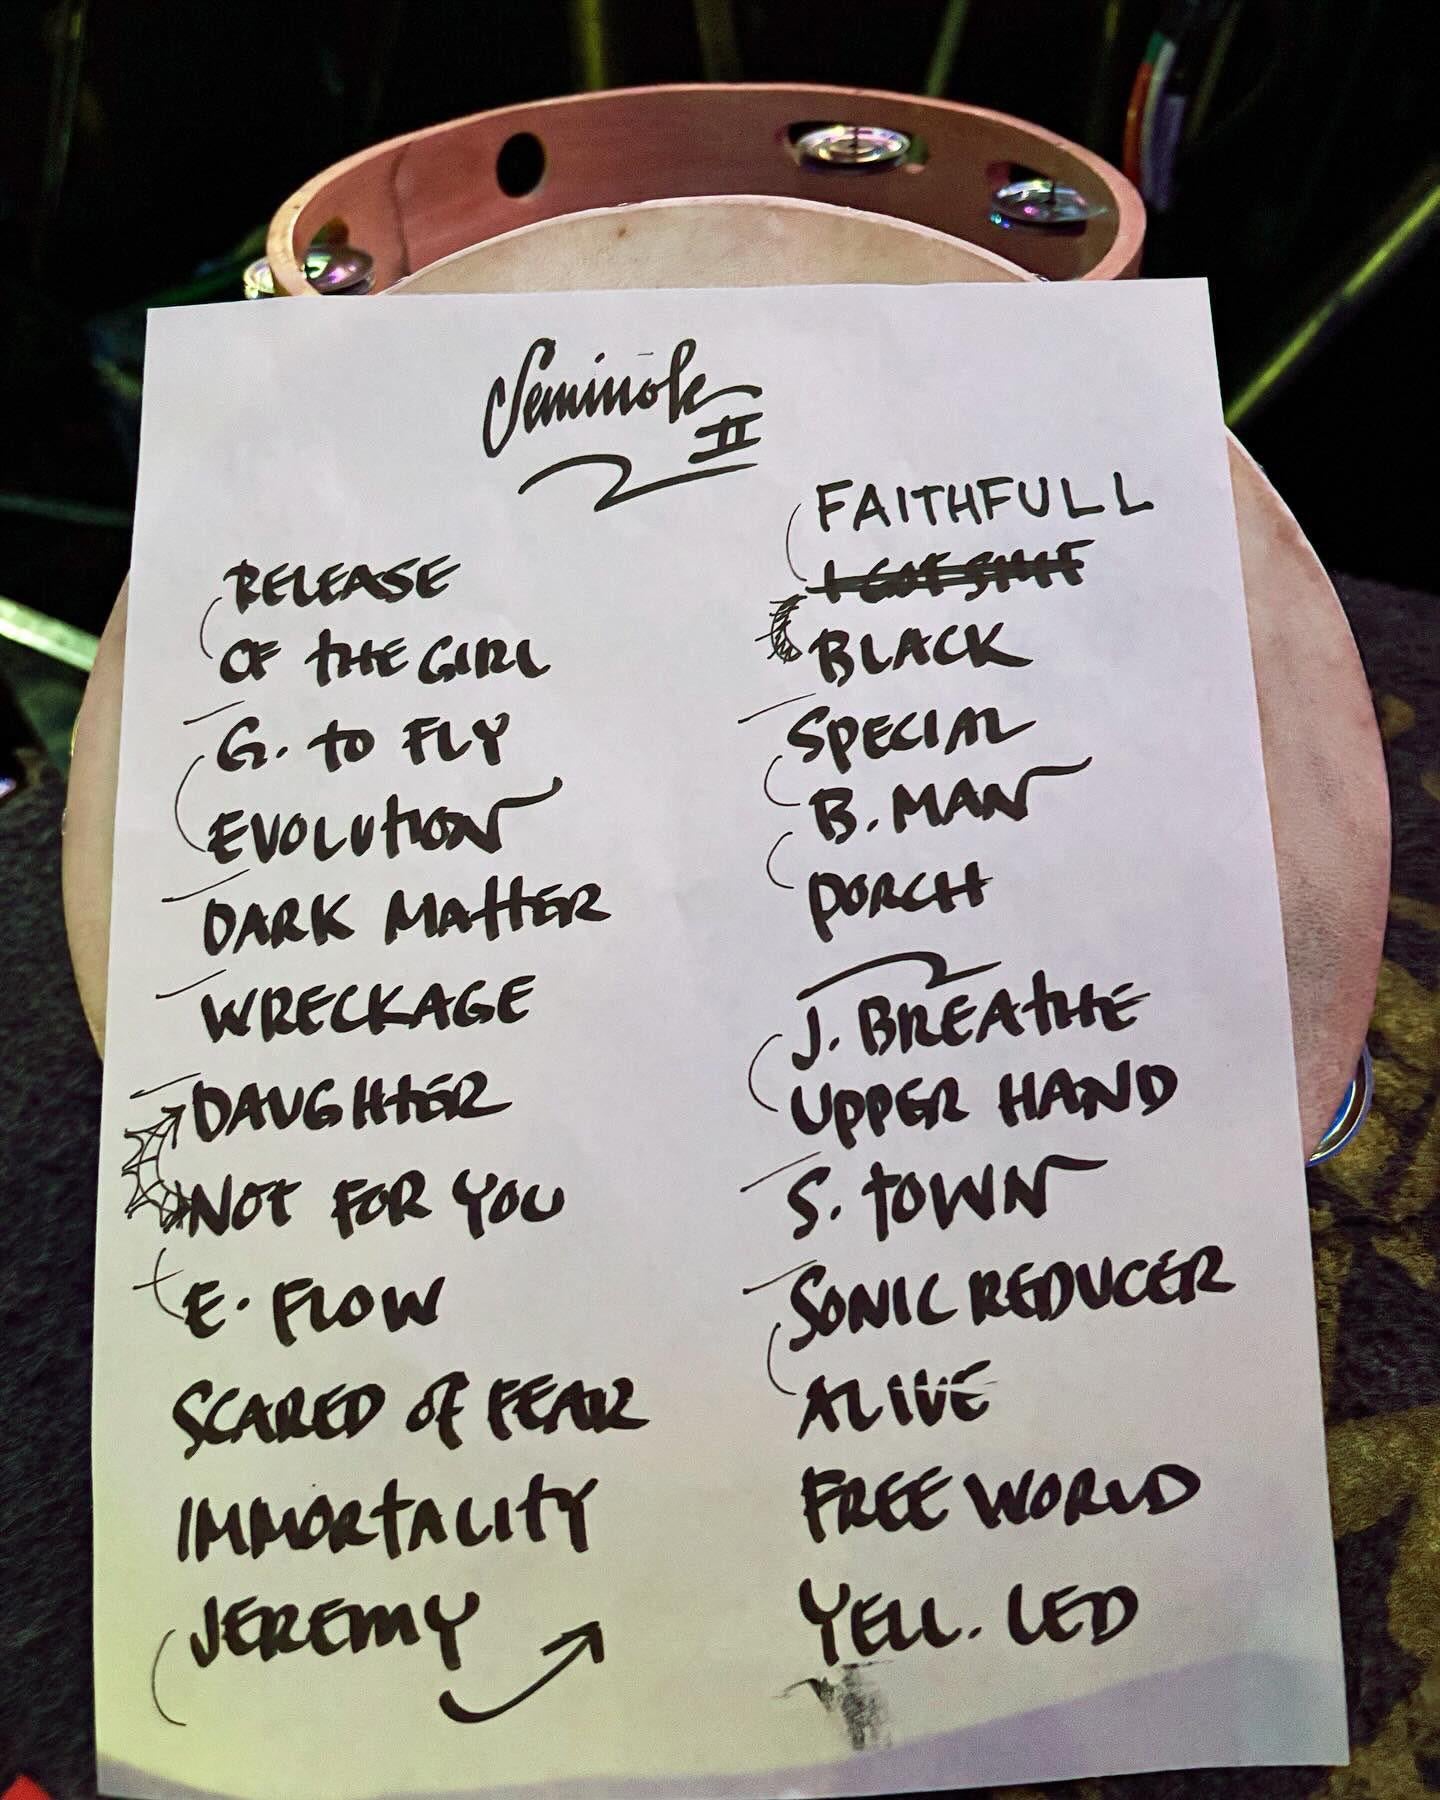 Seminole
II
RELEASE
OF THE GIRL
G. TO FLY
EVOLUTION
DARK MATTER
WRECKAGE
DAUGHTER
NOT FOR YOU
E. FLOW
SCARED OF FEAR
IMMORTALITY
JEREMY
FAITHFULL
I GOT SHIT
BLACK
SPECIAL
B. MAN
PORCH
J. BREATHE
UPPER HAND
S. TOWN
SONIC REDUCER
ALIVE
FREE WORLD
YELL. LED